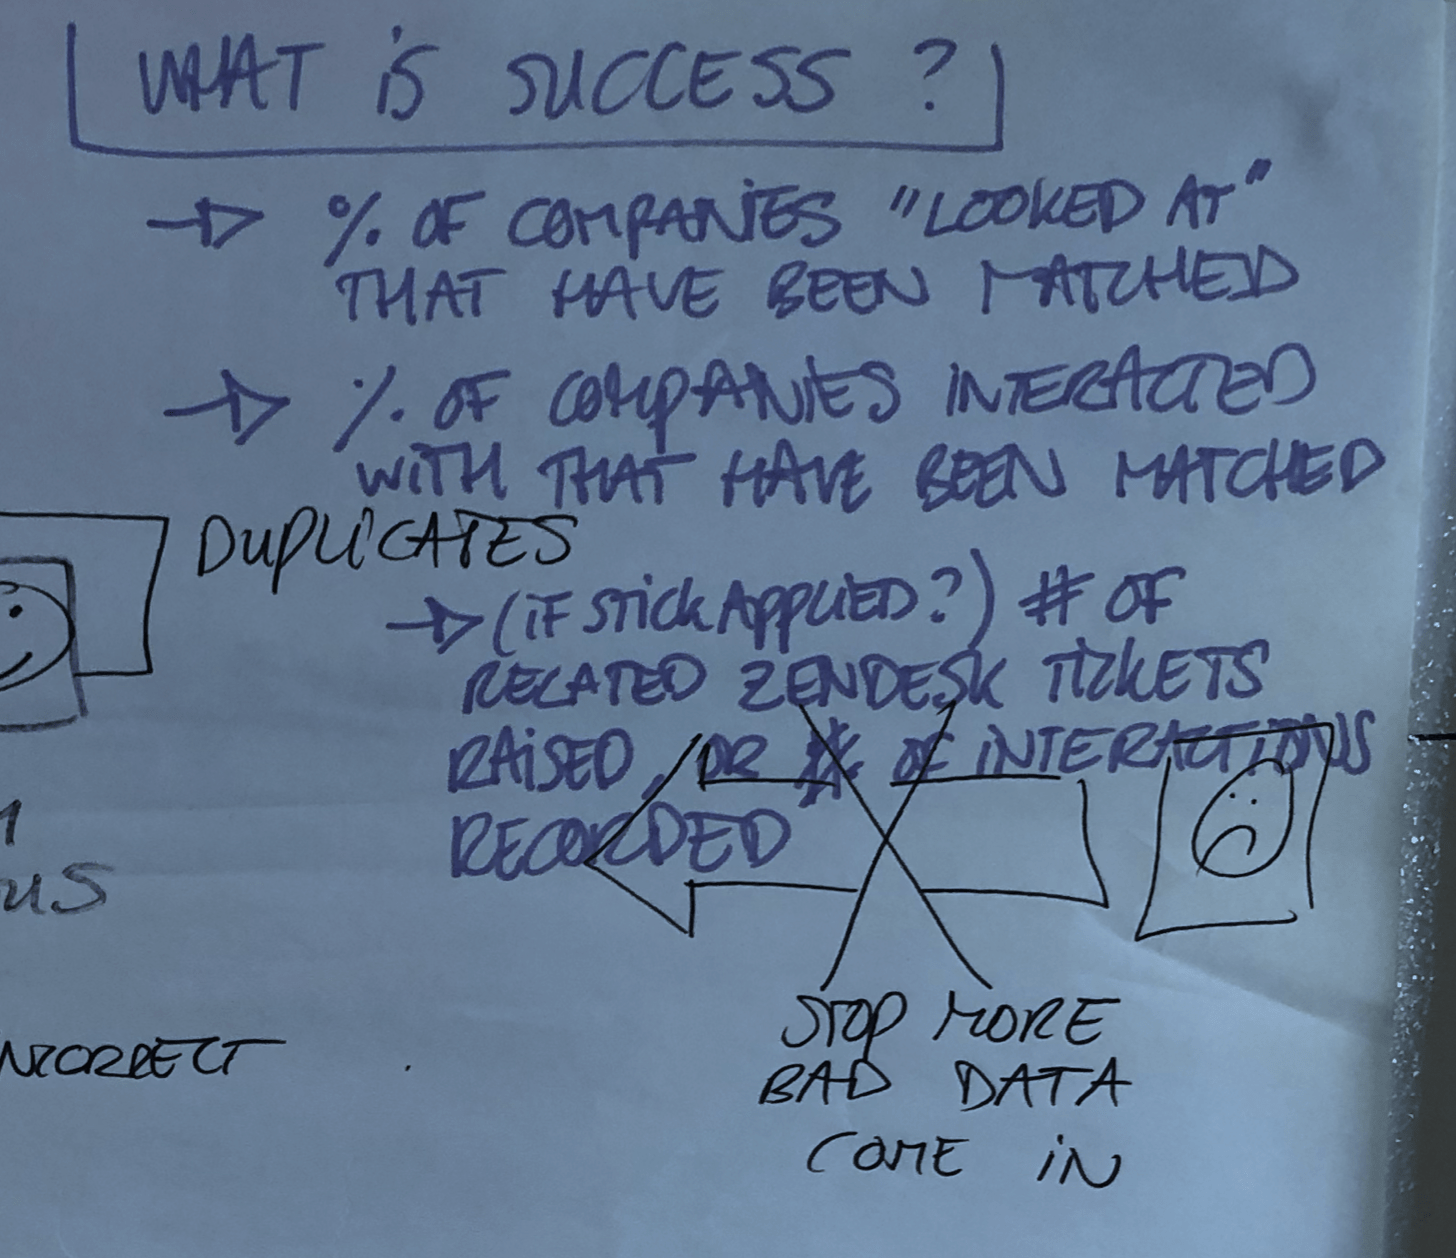 WHAT iS SUCCESS ?
% OF COMPANiES "LOOKED AT"
THAT HAVE BEEN MATCHED
% OF COMPANiES iNTERACTED
WiTH THAT HAVE BEEN MATCHED
DUPLiCATES
(iF STiCK APPLiED?) # OF
RELATED ZENDESK TiCKETS
RAiSED / OR # OF iNTERACTiONS
RECORDED
STOP MORE
BAD DATA
COME iN
NCORRECT